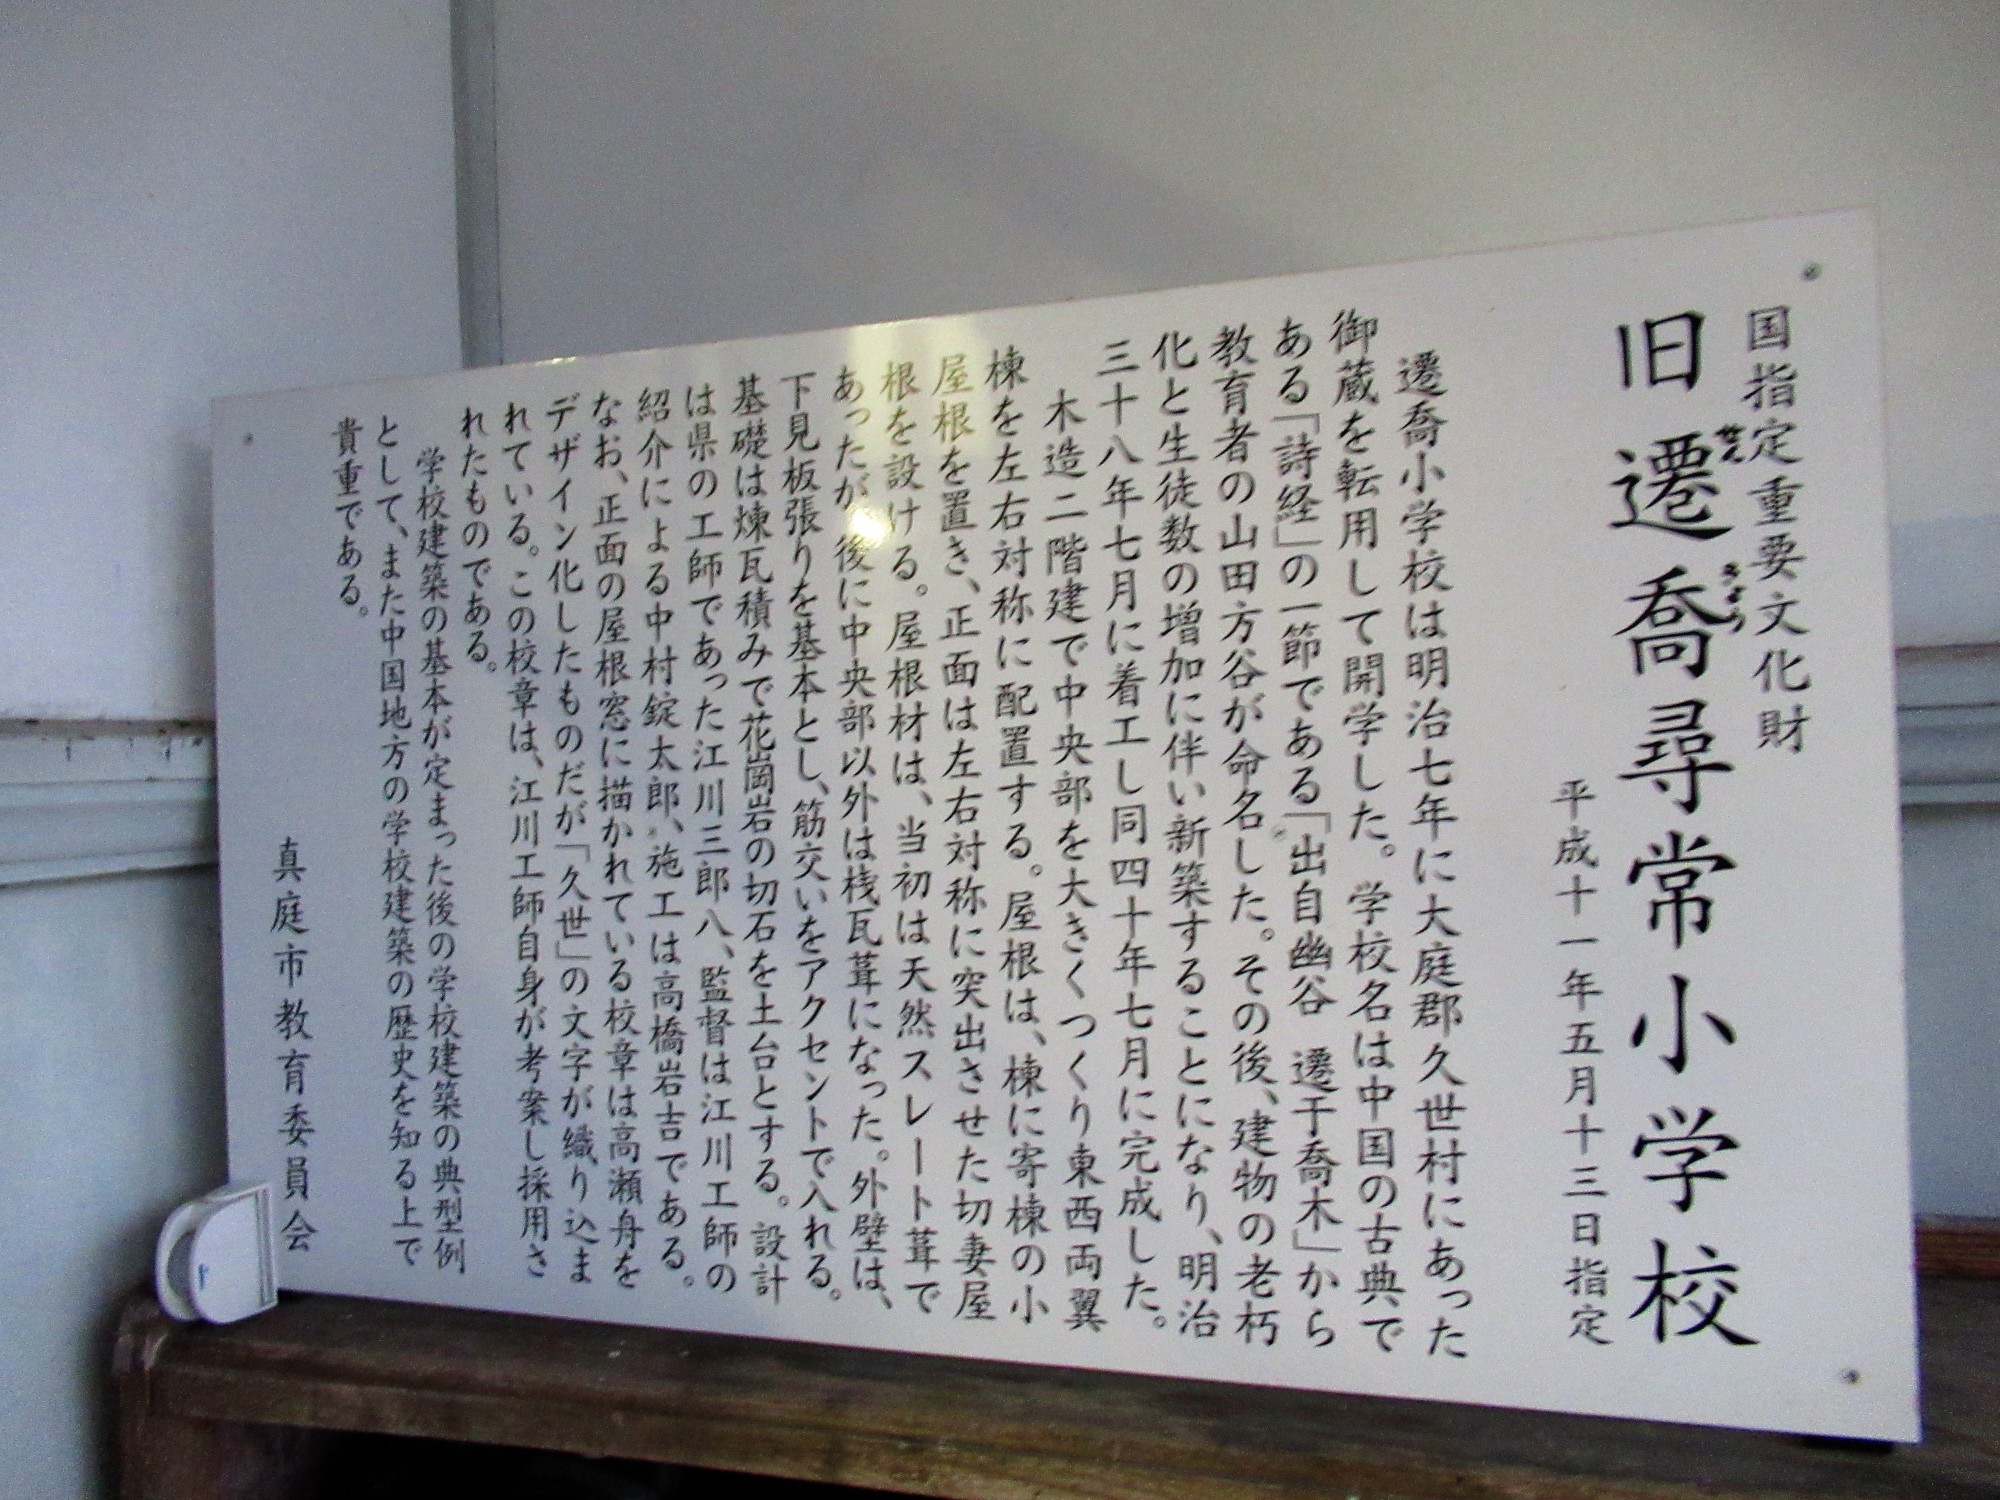 国指定重要文化財
旧遷喬尋常小学校
せん
きょう
平成十一年五月十三日指定
遷喬小学校は明治七年に大庭郡久世村にあった
御蔵を転用して開学した。学校名は中国の古典で
ある「詩経」の一節である「出自幽谷　遷于喬木」から
教育者の山田方谷が命名した。その後、建物の老朽
化と生徒数の増加に伴い新築することになり、明治
三十八年七月に着工し同四十年七月に完成した。
木造二階建で中央部を大きくつくり東西両翼
棟を左右対称に配置する。屋根は、棟に寄棟の小
屋根を置き、正面は左右対称に突出させた切妻屋
根を設ける。屋根材は、当初は天然スレート葺で
あったが後に中央部以外は桟瓦葺になった。外壁は、
下見板張りを基本とし、筋交いをアクセントで入れる。
基礎は煉瓦積みで花崗岩の切石を土台とする。設計
は県の工師であった江川三郎八、監督は江川工師の
紹介による中村錠太郎、施工は高橋岩吉である。
なお、正面の屋根窓に描かれている校章は高瀬舟を
デザイン化したものだが「久世」の文字が織り込ま
れている。この校章は、江川工師自身が考案し採用さ
れたものである。
学校建築の基本が定まった後の学校建築の典型例
として、また中国地方の学校建築の歴史を知る上で
貴重である。
真庭市教育委員会